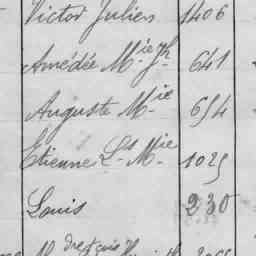 Victor Julien 1406
Amédée Mie Jh 641
Auguste Mie 654
Etienne Ls Mie 1025
Louis 230